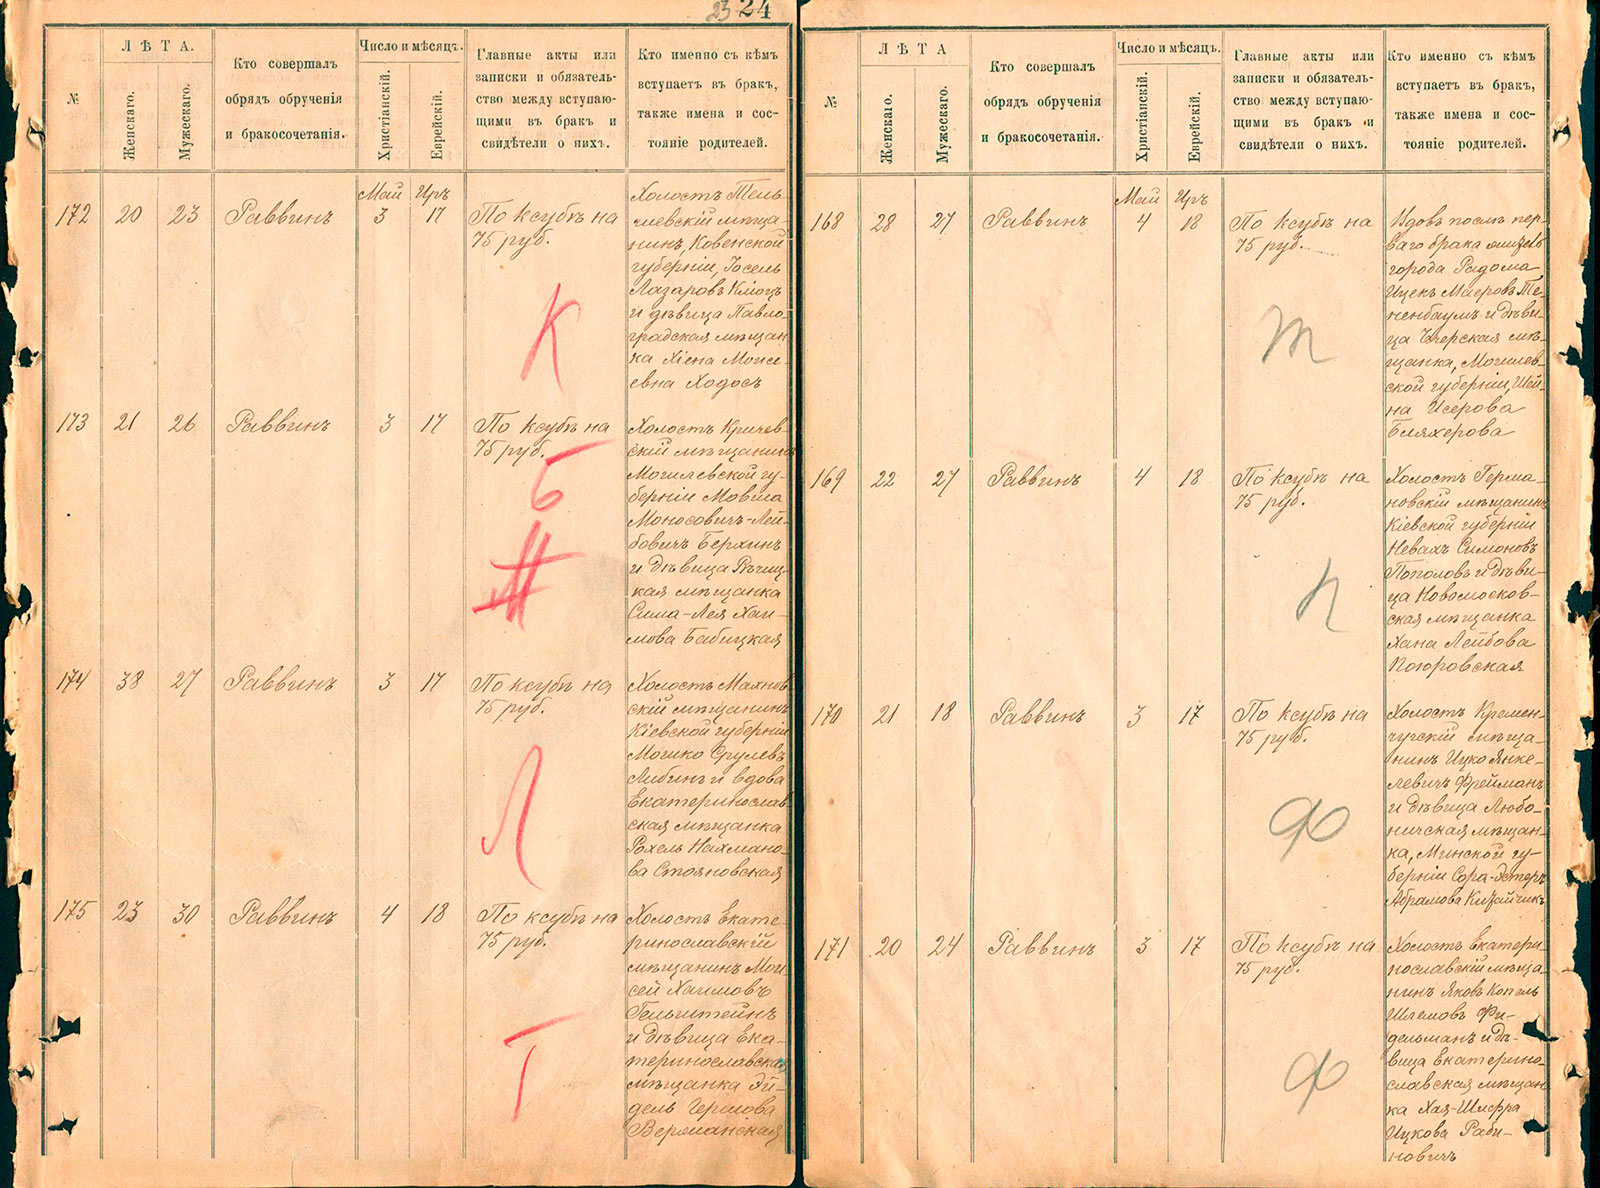 23 24
№
ЛѢТА.
Женскаго.
Мужескаго.
Кто совершалъ
обрядъ обрученія
и бракосочетанія.
Число и мѣсяцъ.
Христіанскій.
Еврейскій.
Главные акты или
записки и обязатель-
ство между вступаю-
щими въ бракъ и
свидѣтели о нихъ.
Кто именно съ кѣмъ
вступаетъ въ бракъ,
также имена и сос-
тояніе родителей.
Май Иръ
172 20 23 Раввинъ 3 17 По ксубѣ на
75 руб.
Холостъ Тель-
шевскій мѣща-
нинъ, Ковенской
губерніи, Іосель
Лазаровъ Кмоцъ
и дѣвица Павло-
градская мѣщан-
ка Хіена Моисе-
евна Ходосъ
К
173 21 26 Раввинъ 3 17 По ксубѣ на
75 руб.
Холостъ Кричев-
скій мѣщанинъ
Могилевской гу-
берніи Мовша
Моносовичъ-Лей-
бовичъ Берхинъ
и дѣвица Рѣчиц-
кая мѣщанка
Сима-Лея Хаи-
мова Бабицкая
Б
174 38 27 Раввинъ 3 17 По ксубѣ на
75 руб.
Холостъ Махнов-
скій мѣщанинъ
Кіевской губерніи
Мошко Срулевъ
Либинъ и вдова
Екатеринослав-
ская мѣщанка
Рохель Нахмано-
ва Стояновская
Л
175 23 30 Раввинъ 4 18 По ксубѣ на
75 руб.
Холостъ Екате-
ринославскій
мѣщанинъ Мои-
сей Хаимовъ
Гельштейнъ
и дѣвица Ека-
теринославская
мѣщанка Эй-
дель Гершова
Верлинская
Г
№
ЛѢТА
Женскаго.
Мужескаго.
Кто совершалъ
обрядъ обрученія
и бракосочетанія.
Число и мѣсяцъ.
Христіанскій.
Еврейскій.
Главные акты или
записки и обязатель-
ство между вступаю-
щими въ бракъ и
свидѣтели о нихъ.
Кто именно съ кѣмъ
вступаетъ въ бракъ,
также имена и сос-
тояніе родителей.
Май Иръ
168 28 27 Раввинъ 4 18 По ксубѣ на
75 руб.
Вдовъ послѣ пер-
ваго брака житель
города Радома
Ицекъ Маеровъ Те-
ненбаумъ и дѣви-
ца Чечерская мѣ-
щанка, Могилев-
ской губерніи, Шей-
на Исерова
Бляхерова
Т
169 22 27 Раввинъ 4 18 По ксубѣ на
75 руб.
Холостъ Герма-
новскій мѣщанинъ
Кіевской губерніи
Невахъ Симоновъ
Пополовъ и дѣви-
ца Новомосков-
ская мѣщанка
Хана Лейбова
П
170 21 18 Раввинъ 3 17 По ксубѣ на
75 руб.
Холостъ Кремен-
чугскій мѣща-
нинъ Ицко Янке-
левичъ Фрейманъ
и дѣвица Любо-
ничская мѣщан-
ка, Минской гу-
берніи Сора-Эстеръ
Абрамова
Ф
171 20 24 Раввинъ 3 17 По ксубѣ на
75 руб.
Холостъ Екатери-
нославскій мѣща-
нинъ Яковъ Копель
Шлемовъ Фи-
дельманъ и дѣ-
вица Екатерино-
славская мѣщан-
ка Хая-Шифра
Ицкова Раби-
новичъ
Ф